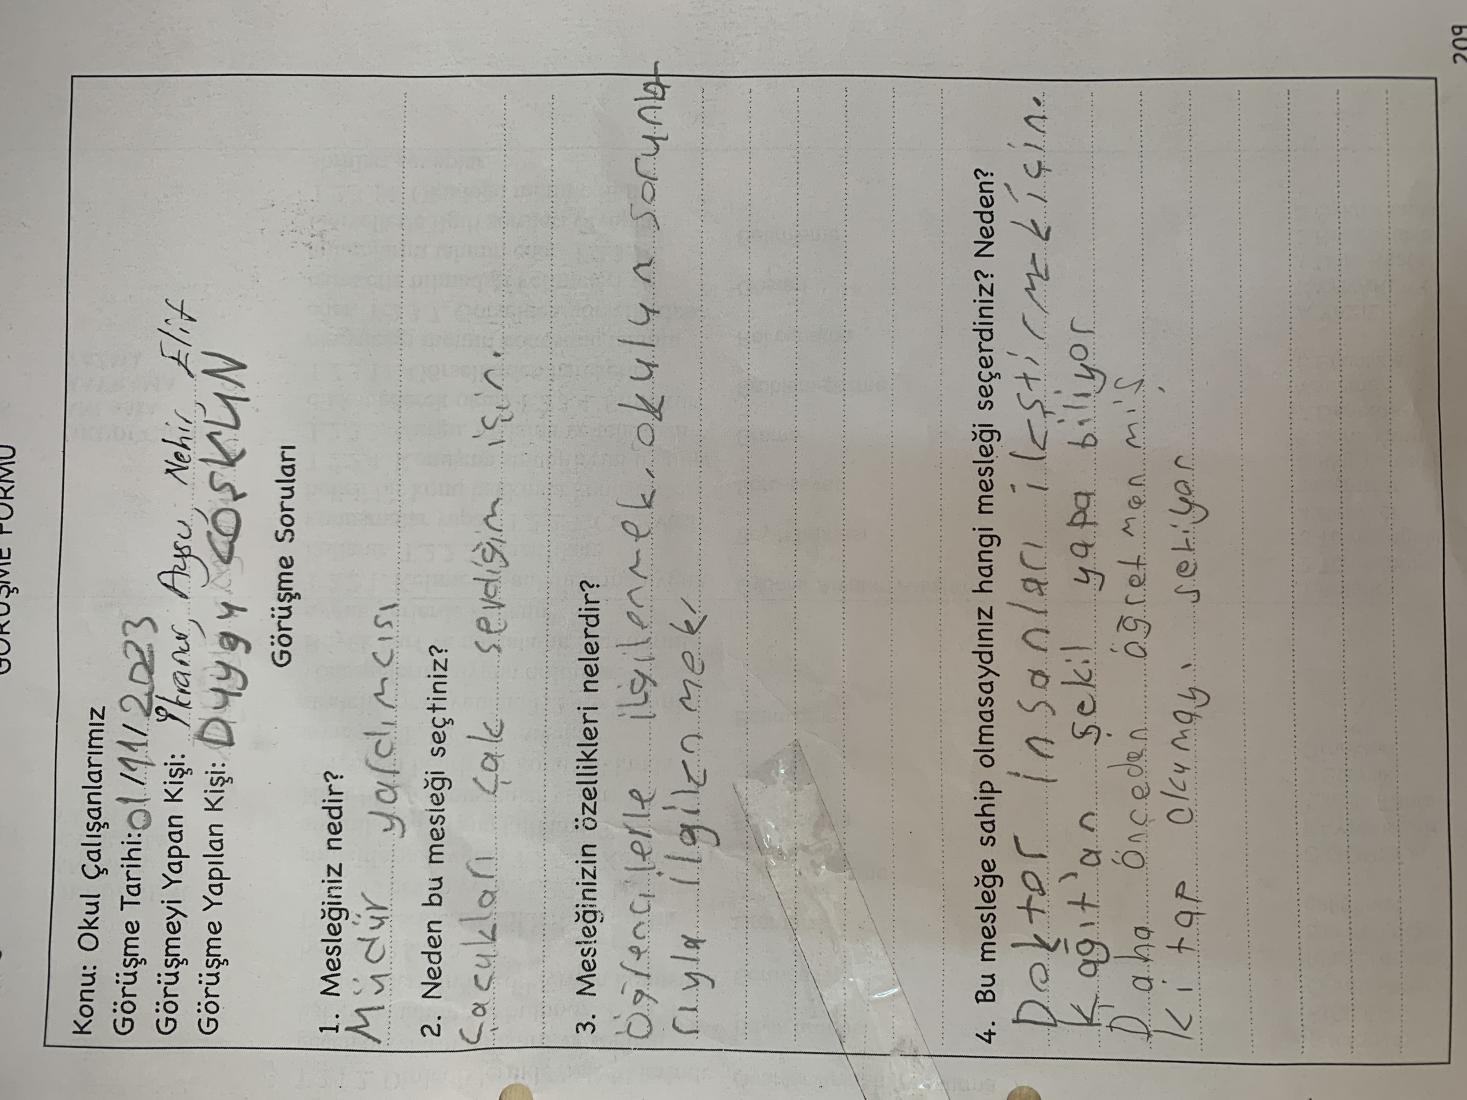 GÖRÜŞME FORMU
Konu: Okul Çalışanlarımız
Görüşme Tarihi: 01/11/2023
Görüşmeyi Yapan Kişi: Aysu, Nehir, Elif
Görüşme Yapılan Kişi: Duygu COŞKUN
Görüşme Soruları
1. Mesleğiniz nedir?
Müdür yardımcısı
2. Neden bu mesleği seçtiniz?
Çaçukları çak sevdiğim için.
3. Mesleğinizin özellikleri nelerdir?
Öğrencilerle ilgilenmek. okulun sorunla
rıyla ilgilenmek.
4. Bu mesleğe sahip olmasaydınız hangi mesleği seçerdiniz? Neden?
Doktor insanları iileştirmek için.
Kağıt'an şekil yapa biliyor
Daha önceden öğretmenmiş.
Kitap okumayı setiyor
209